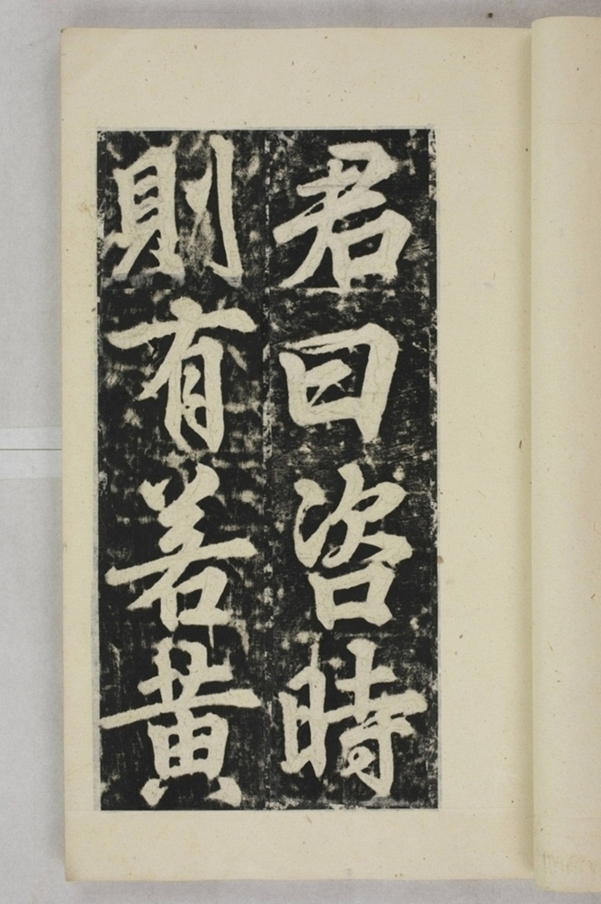 君曰咨時
則有若黃